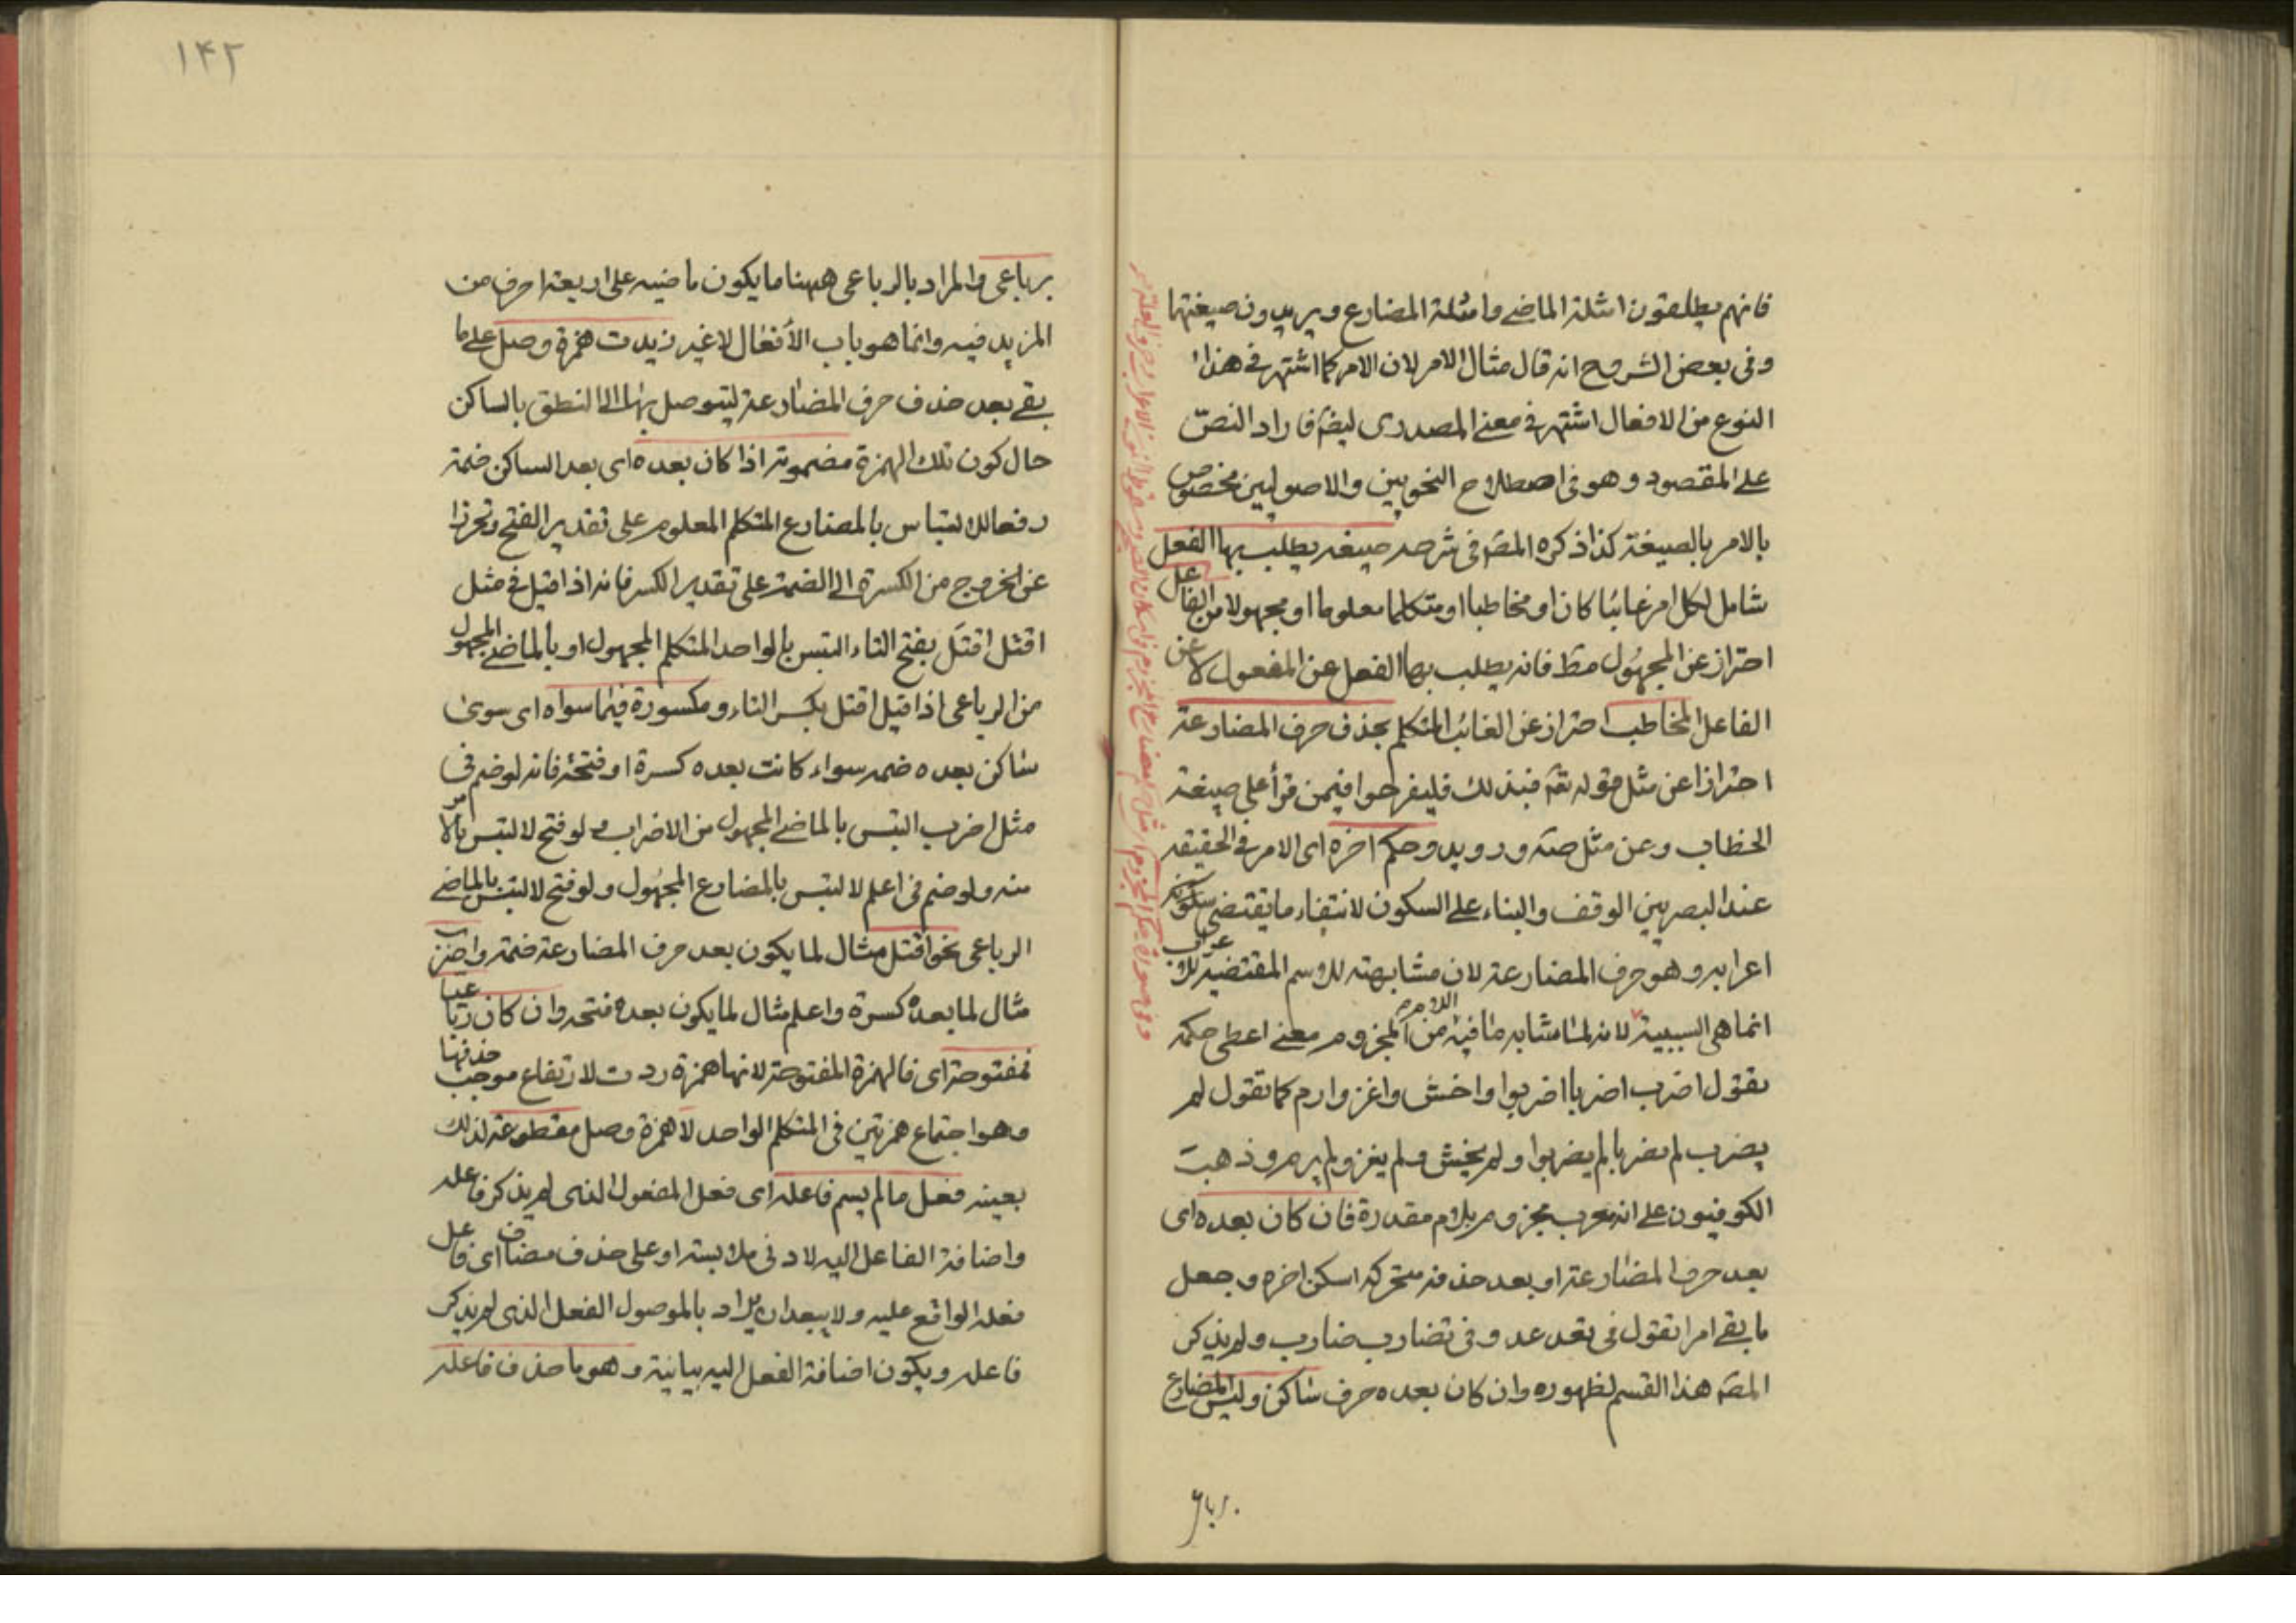 فانهم يطلقون امثلة الماضي وامثلة المضارع ويريدون صيغتها
وفي بعض الشروح انه قال مثال الامر لان الامر كما اشتهر في هذا
النوع من الافعال اشتهر في معنى المصدري ليضم فاراد النص
على المقصود وهو في اصطلاح النحويين والاصوليين مخصوص
بالامر بالصيغة كذا ذكره المصم في شرحه صيغه يطلب بها الفعل
شامل لكل امر غائبا كان او مخاطبا او متكلما معلوما او مجهولا من الفاعل
احتراز عن المجهول مط فانه يطلب بها الفعل عن المفعول لا عن
الفاعل المخاطب احتراز عن الغائب المتكلم بحذف حرف المضارعة
احترازا عن مثل قوله تعه فبذلك فليفرحوا فيمن قرأ على صيغة
الخطاب وعن مثل صه ورويد وحكم اخره اى الامر في الحقيقه
عند البصريين الوقف والبناء على السكون لانتفاء ما يقتضى
اعرابه وهو حرف المضارعة لان مشابهته للاسم المقتضية للاعراب
انما هى السببية لانه لما شابه ما فيه من اللام المجزوم معنى اعطى حكمه
تقول اضرب اضربا اضربوا واخش واغز وارم كما تقول لم
يضرب لم يضربا لم يضربوا ولم يخش ولم يغز ولم يرم وذهبت
الكوفيون على انه معرب مجزوم بلام مقدرة فان كان بعده اى
بعد حرف المضارعة او بعد حذفه متحركه اسكن اخره وجعل
ما بقى امرا تقول في تعد عد وفي تضارب ضارب ولم يذكر
المصه هذا القسم لظهوره وان كان بعده حرف ساكن وليس المضارع
برباعى
١٤٢
برباعى والمراد بالرباعى ههنا ما يكون ماضيه على اربعة احرف من
المزيد فيه وانما هو باب الأفعال لا غير زيدت همزة وصل على ما
بقى بعد حذف حرف المضارعة ليتوصل بها الى النطق بالساكن
حال كون تلك الهمزة مضمومة اذا كان بعده اى بعد الساكن ضمة
دفعا للالتباس بالمضارع المتكلم المعلوم على تقدير الفتح وتحرزا
عن الخروج من الكسرة الى الضمة على تقدير الكسر فانه اذا قيل في مثل
اقتل اقتَل بفتح التاء التبس بالواحد المتكلم المجهول او بالماضي المجهول
من الرباعى اذا قيل اقتل بكسر التاء ومكسورة فيما سواه اى سوى
ساكن بعده ضمه سواء كانت بعده كسرة او فتحة فانه لو ضم في
مثل اضرب التبس بالماضي المجهول من الاضراب ولو فتح لالتبس بالامر
منه ولو ضم في اعلم لالتبس بالمضارع المجهول ولو فتح لالتبس بالماضي
الرباعى نحو اقتل مثال لما يكون بعد حرف المضارعة ضمة واضرب
مثال لما بعده كسرة واعلم مثال لما يكون بعده فتحه وان كان رباعيا
فمفتوحة اى فالهمزة المفتوحة لانها همزة ردت لارتفاع موجب حذفها
وهو اجتماع همزتين في المتكلم الواحد لا همزة وصل مقطوعة لذلك
بعينه فعل ما لم يسم فاعله اى فعل المفعول الذى لم يذكر فاعله
واضافة الفاعل اليه لادنى ملابسة او على حذف مضاف اى فاعل
فعله الواقع عليه ولا يبعد ان يراد بالموصول الفعل الذى لم يذكر
فاعله ويكون اضافة الفعل اليه بيانية وهو ما حذف فاعله